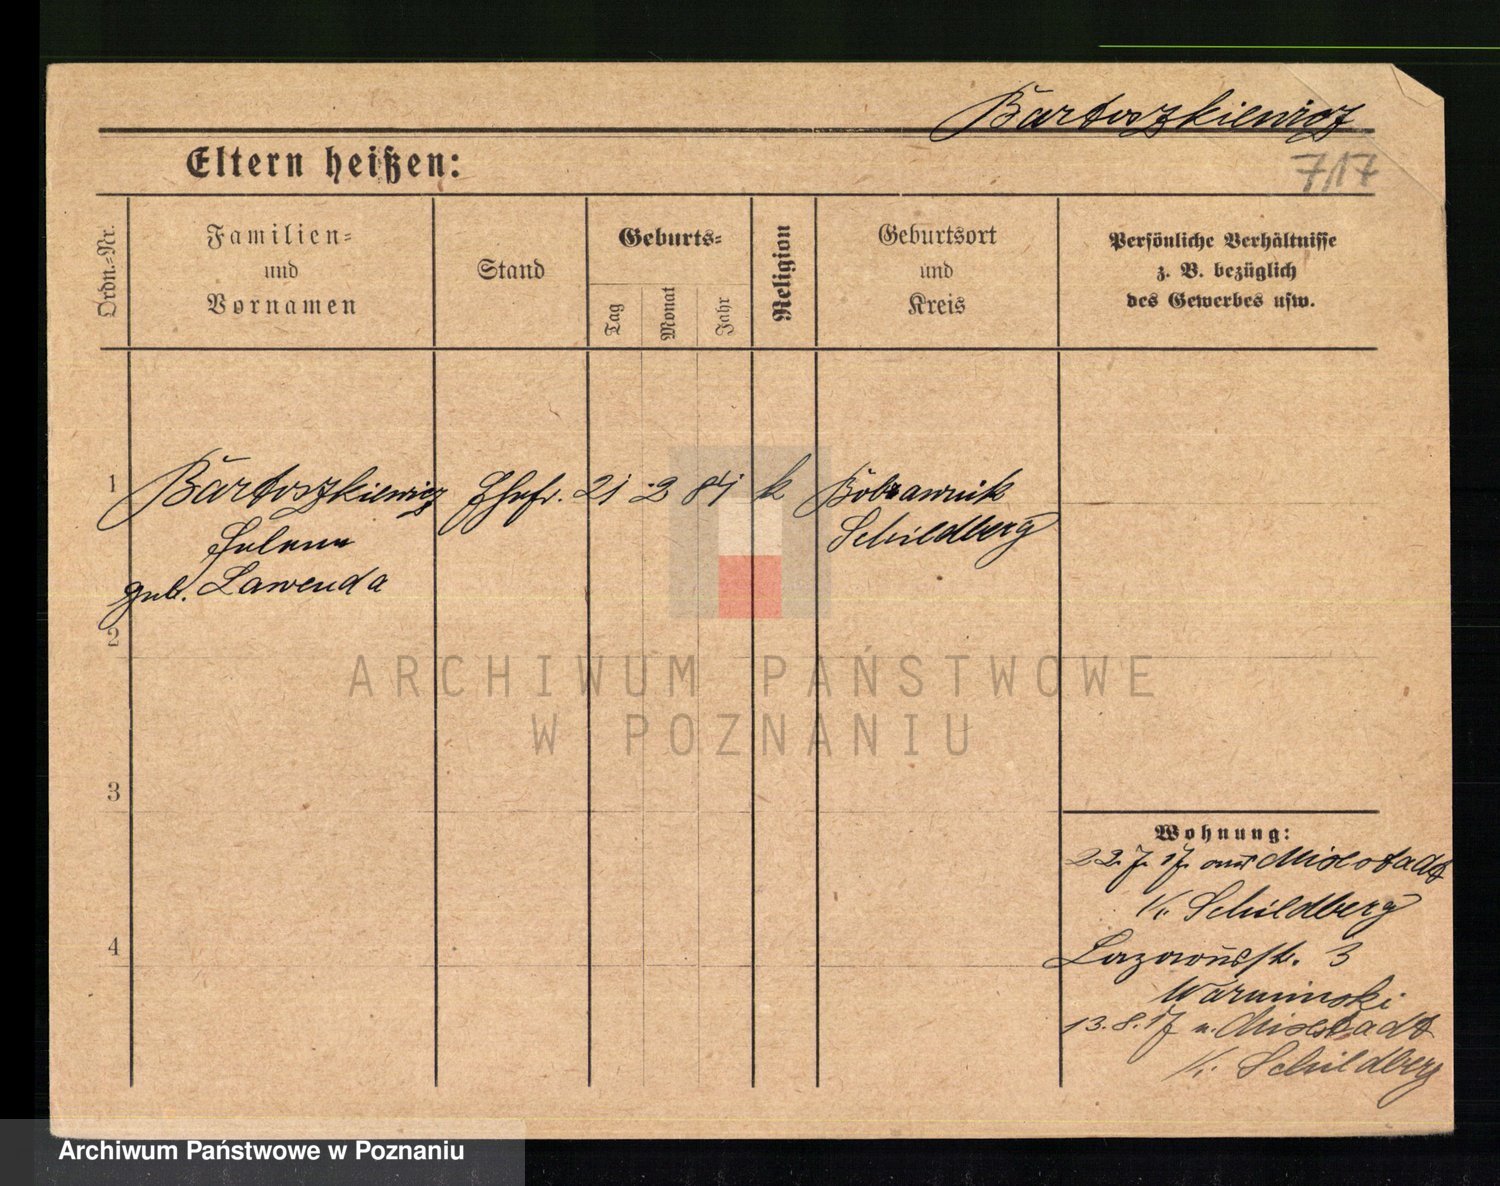 Bartoszkiewicz
Eltern heißen:
7/17
Ordn.-Nr.
Familien-
und
Vornamen
Stand
Geburts-
Tag
Monat
Jahr
Religion
Geburtsort
und
Kreis
Persönliche Verhältnisse
z. B. bezüglich
des Gewerbes usw.
1 Bartoszkiewicz Ehefr. 21 2 84 k Bobrawnik
Helene Schildberg
geb. Lawenda
2
3
4
Wohnung:
22.7.17 aus Mixstadt
Kr. Schildberg
Lazarusstr. 3
Warminski
13.8.17 n. Mixstadt
Kr. Schildberg
ARCHIWUM PAŃSTWOWE
W POZNANIU
Archiwum Państwowe w Poznaniu